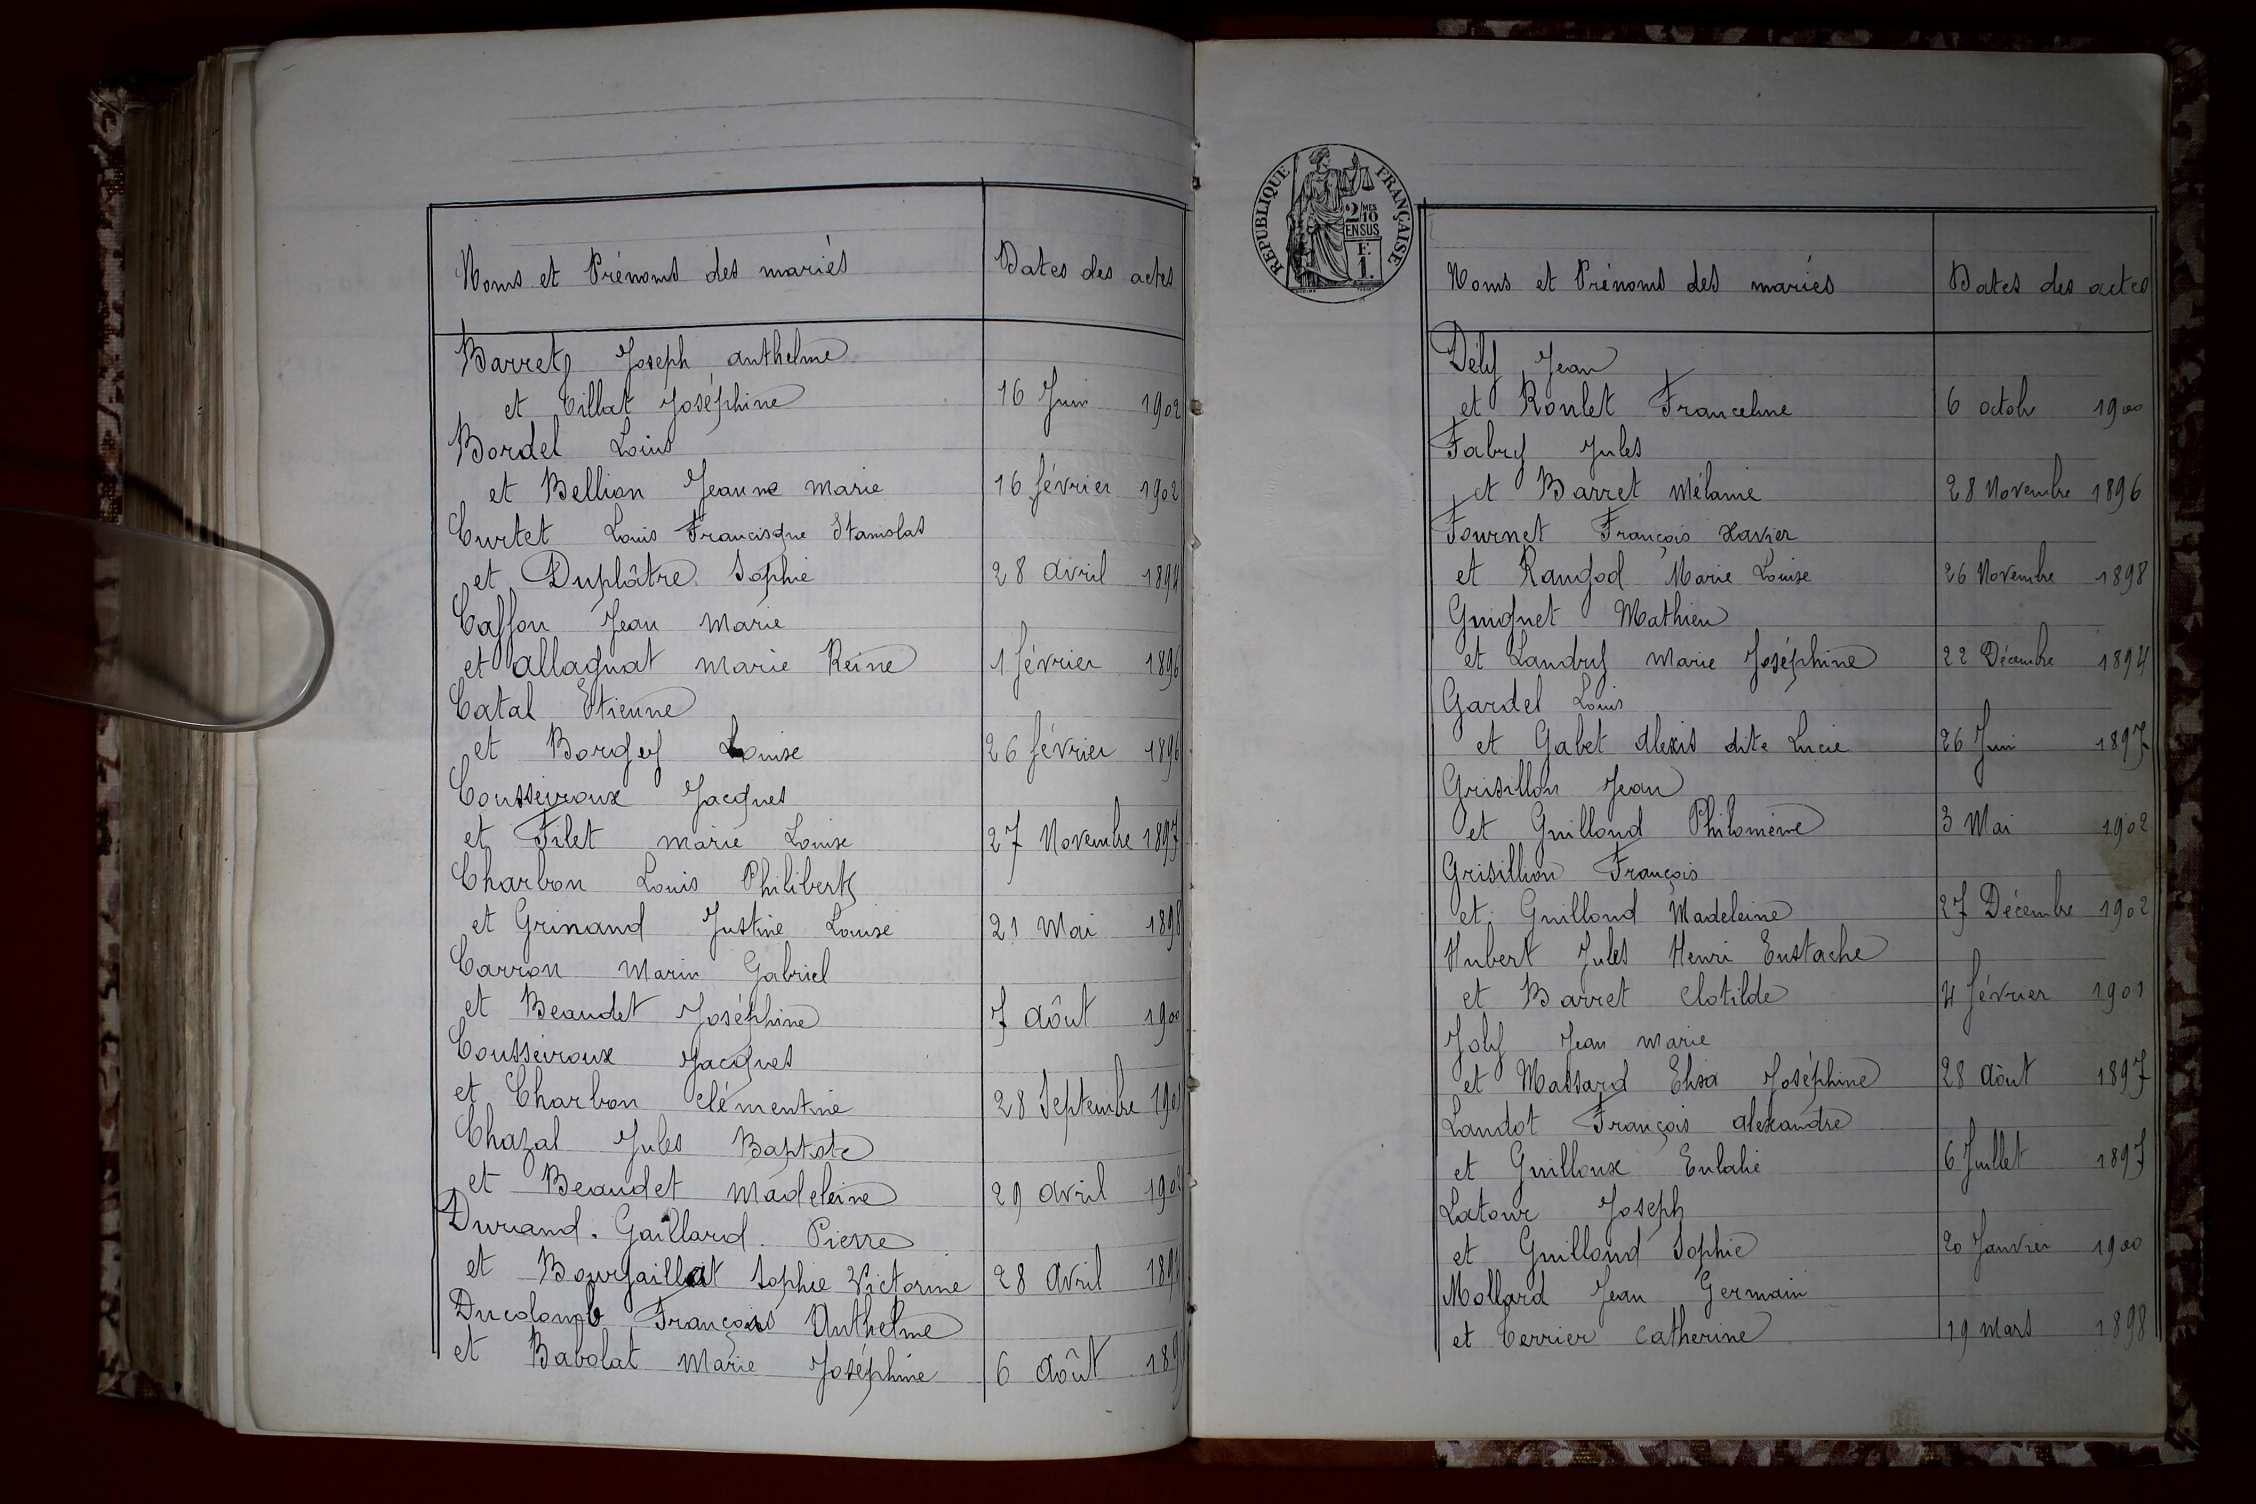 Noms et Prénoms des mariés Dates des actes
Barret Joseph anthelme
et Cillat Joséphine 16 Juin 1902
Bordel Louis
et Bellion Jeanne marie 16 février 1902
Curtet Louis Francisque Stanislas
et Duplâtre Sophie 28 avril 1894
Caffon Jean Marie
et allagnat marie Reine 1 février 1896
Catal Etienne
et Borgey Louise 26 février 1896
Cousseiroux Jacques
et Filet marie Louise 27 Novembre 1897
Charbon Louis Philibert
et Grinand Justine Louise 21 Mai 1898
Carron Marin Gabriel
et Beaudet Joséphine 7 aôut 1900
Cousseiroux Jacques
et Charbon clémentine 28 Septembre
Chazal Jules Baptiste
et Beaudet Madeleine 29 avril
Durand. Gaillard. Pierre
et Bourgaillat Sophie Victorine 28 avril
Ducolomb François Anthelme
et Babolat Marie Joséphine 6 août
RÉPUBLIQUE FRANÇAISE
2/10 MES
EN SUS
F.
1.
Noms et Prénoms des mariés Dates des actes
Dély Jean
et Roulet Franceline 6 octobr 1900
Fabry Jules
et Barret Mélanie 28 Novembre 1896
Fournet François Xavier
et Rangod Marie Louise 26 Novembre 1898
Guignet Mathieu
et Landry Marie Joséphine 22 Décembre 1894
Gardel Louis
et Gabet Alexis dite Lucie 26 Juin 1897
Grisillon Jean
et Guilloud Philomène 3 Mai 1902
Grisillion François
et Guilloud Madeleine 27 Décembre 1902
Hubert Jules Henri Eustache
et Barret Clotilde 4 février 1901
Joly Jean marie
et Massard Elisa Joséphine 28 Aôut 1897
Landot François alexandre
et Guilloux Eulalie 6 Juillet 1897
Latour Joseph
et Guilloud Sophie 20 Janvier 1900
Mollard Jean Germain
et Cerrier Catherine 19 mars 1898